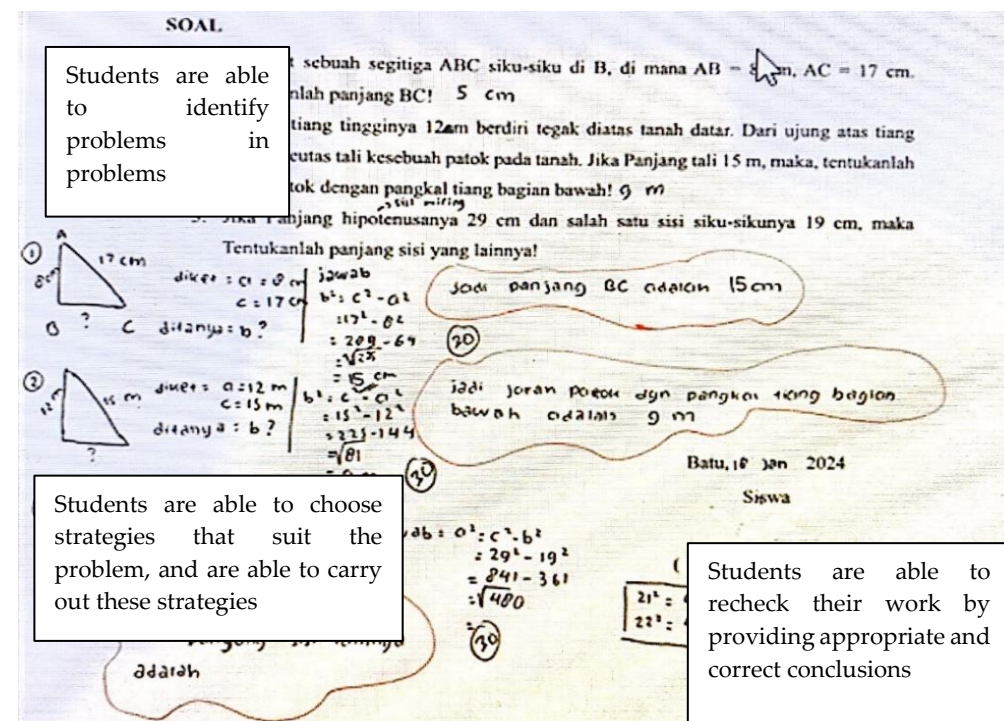 SOAL
Students are able
to identify
problems in
problems
sebuah segitiga ABC siku-siku di B, di mana AB = AC = 17 cm.
panjang BC! 5 cm
tiang tingginya 12 m berdiri tegak diatas tanah datar. Dari ujung atas tiang
tali kesebuah patok pada tanah. Jika Panjang tali 15 m, maka, tentukanlah
dengan pangkal tiang bagian bawah! 9 m
miring
hipotenusanya 29 cm dan salah satu sisi siku-sikunya 19 cm, maka
Tentukanlah panjang sisi yang lainnya!
1
A
8 cm
17 cm
B ? C
diket : a = 8 cm
c = 17 cm
ditanya = b ?
jawab
b² = c² - a²
= 15 cm
panjang BC adalah 15 cm
30
2
12 m
15 m
?
diket = a = 12 m
c = 15 m
ditanya : b ?
b² = c² - a²
= 15² - 12²
= 225 - 144
= √81
30
jadi dgn pangkal tiang bagian
bawah adalah 9 m
Batu, Jan 2024
Siswa
Students are able to choose
strategies that suit the
problem, and are able to carry
out these strategies
a² = c² - b²
= 29² - 19²
= 841 - 361
= √480
=
30
adalah
21² =
22² =
Students are able to
recheck their work by
providing appropriate and
correct conclusions